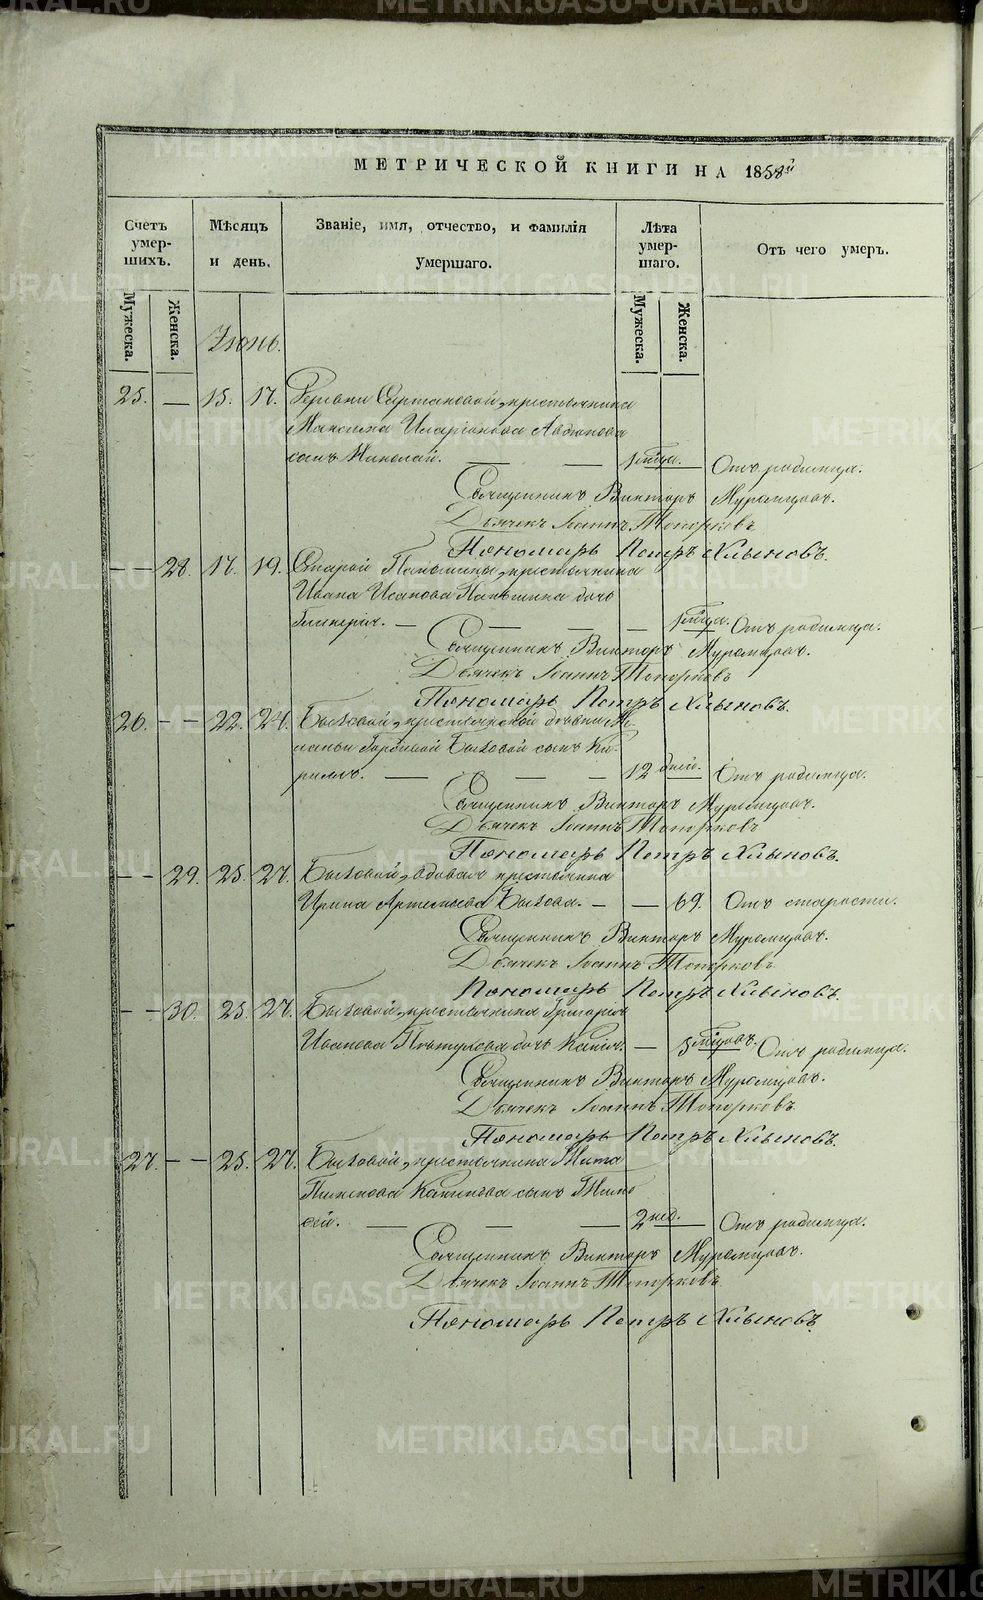 МЕТРИЧЕСКОЙ КНИГИ НА 1858й
Счетъ умер- шихъ.
Мѣсяцъ и день.
Званіе, имя, отчество, и фамилія умершаго.
Лѣта умер- шаго.
Отъ чего умеръ.
Мужеска.
Женска.
Мужеска.
Женска.
Іюнь.
25. — 15. 17. Деревни крестьянина
Максима Иларіонова
сынъ Николай. — — 1 мѣсяца. — Отъ родимца.
Священникъ Викторъ Муромцовъ.
Дьячекъ Іоаннъ Топорковъ
Пономарь Петръ Хлыновъ.
— — 28. 17. 19. Старой крестьянина
Ивана Исакова Паньшина дочь
Гликерія. — — — — 1 мѣсяца. Отъ родимца.
Священникъ Викторъ Муромцовъ.
Дьячекъ Іоаннъ Топорковъ
Пономарь Петръ Хлыновъ.
26. — — 22. 24. Быковой, крестьянской
Быковой сынъ Ки-
риллъ. — — — 12 дней. — Отъ родимца.
Священникъ Викторъ Муромцовъ.
Дьячекъ Іоаннъ Топорковъ
Пономарь Петръ Хлыновъ.
— — 29. 25. 27. Быковой, вдовая крестьянка
Ирина Артемьева Быкова. — — 69. Отъ старости.
Священникъ Викторъ Муромцовъ.
Дьячекъ Іоаннъ Топорковъ
Пономарь Петръ Хлыновъ.
— — 30. 25. 27. Быковой, крестьянина Григорія
Иванова дочь — 5 мѣсяцовъ. Отъ родимца.
Священникъ Викторъ Муромцовъ.
Дьячекъ Іоаннъ Топорковъ
Пономарь Петръ Хлыновъ.
27. — — 25. 27. Быковой, крестьянина Тита
Пименова сынъ Тимо-
фей. — — — 2 нед. — Отъ родимца.
Священникъ Викторъ Муромцовъ.
Дьячекъ Іоаннъ Топорковъ
Пономарь Петръ Хлыновъ.
METRIKI.GASO-URAL.RU